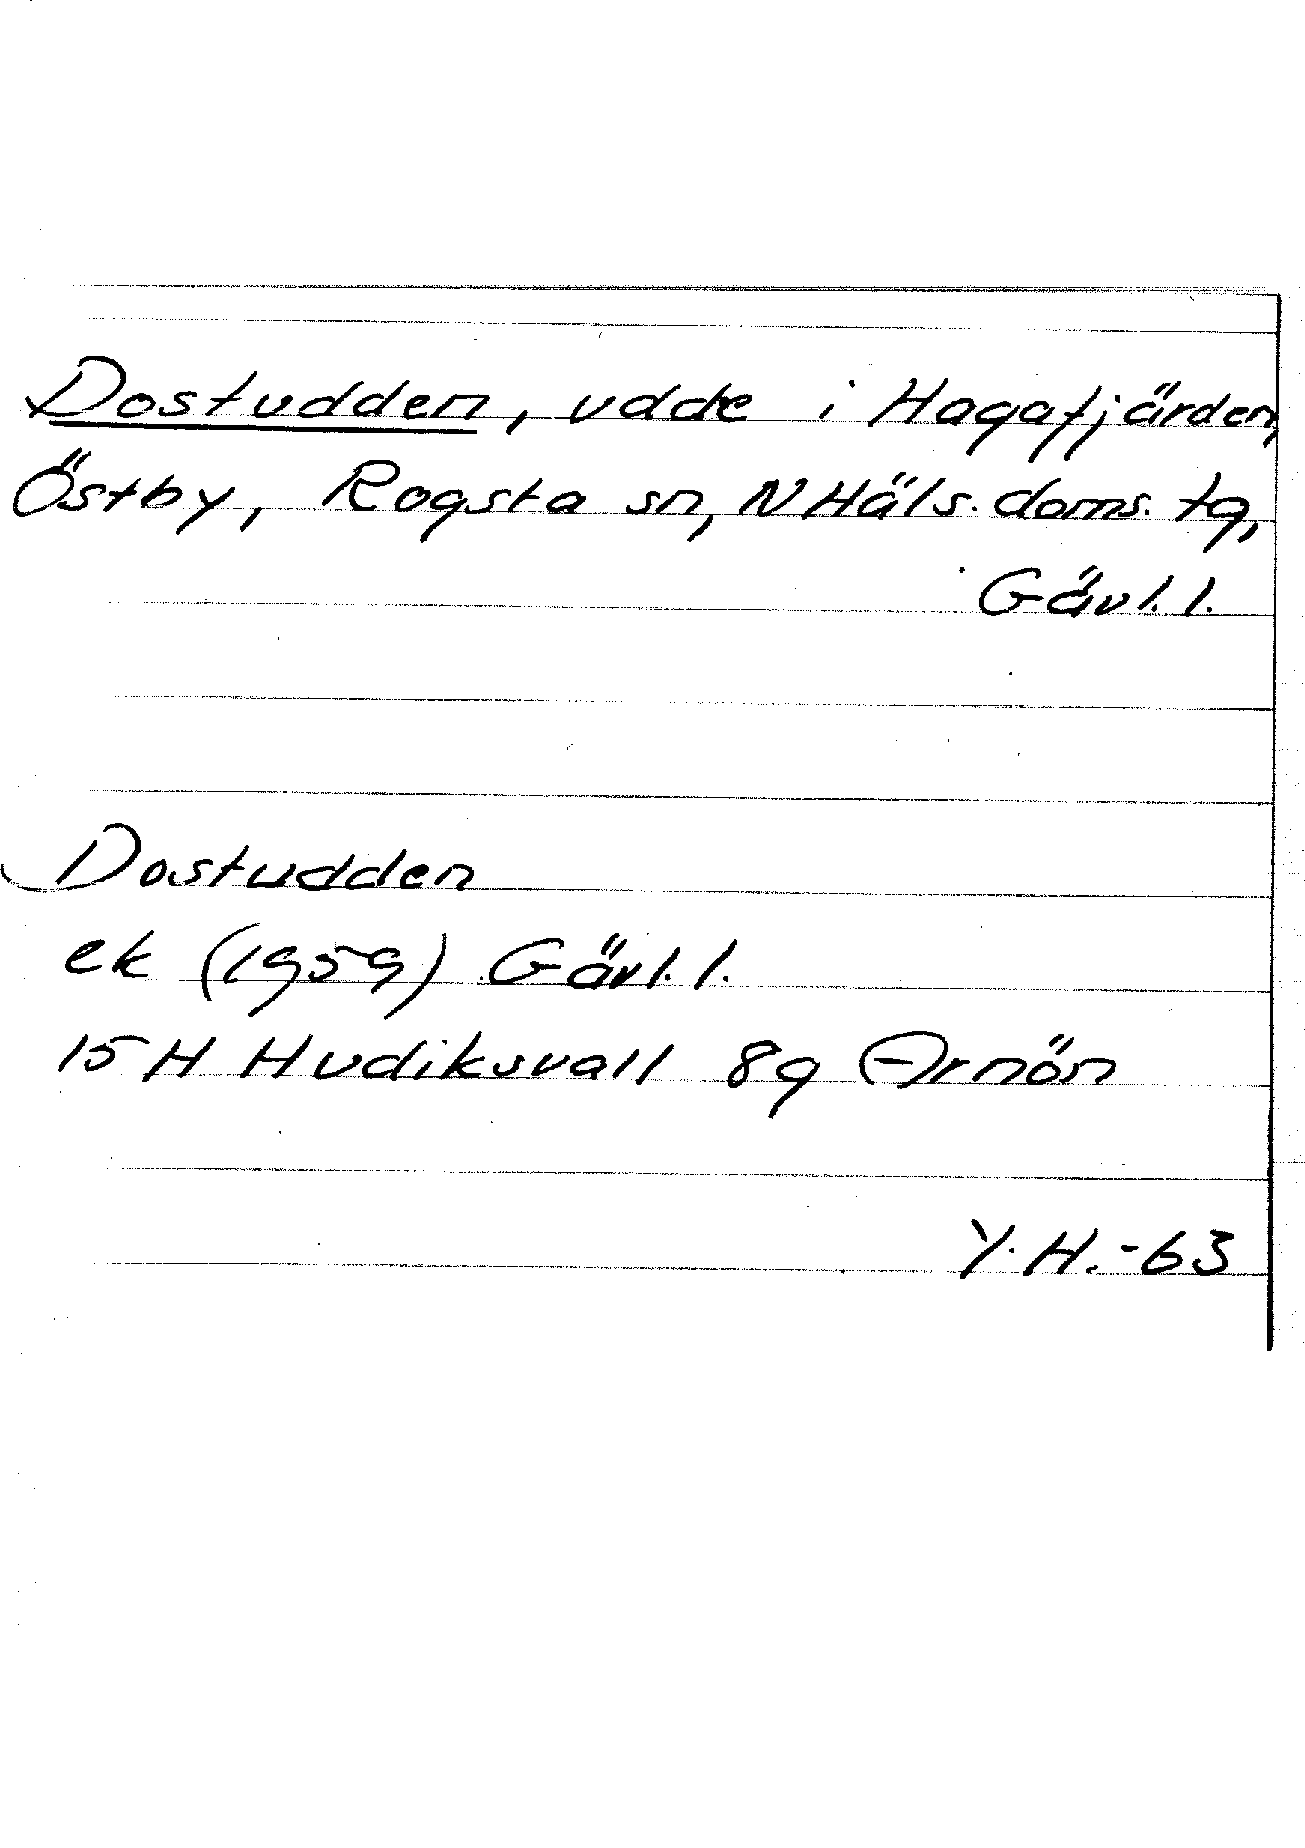 Dostudden, udde i Hagafjärden,
Östby, Rogsta sn, N Häls. doms. tg,
Gävl. l.
Dostudden
ek (1959) Gävl. l.
15H Hudiksvall 8g Arnön
Y.H.-63